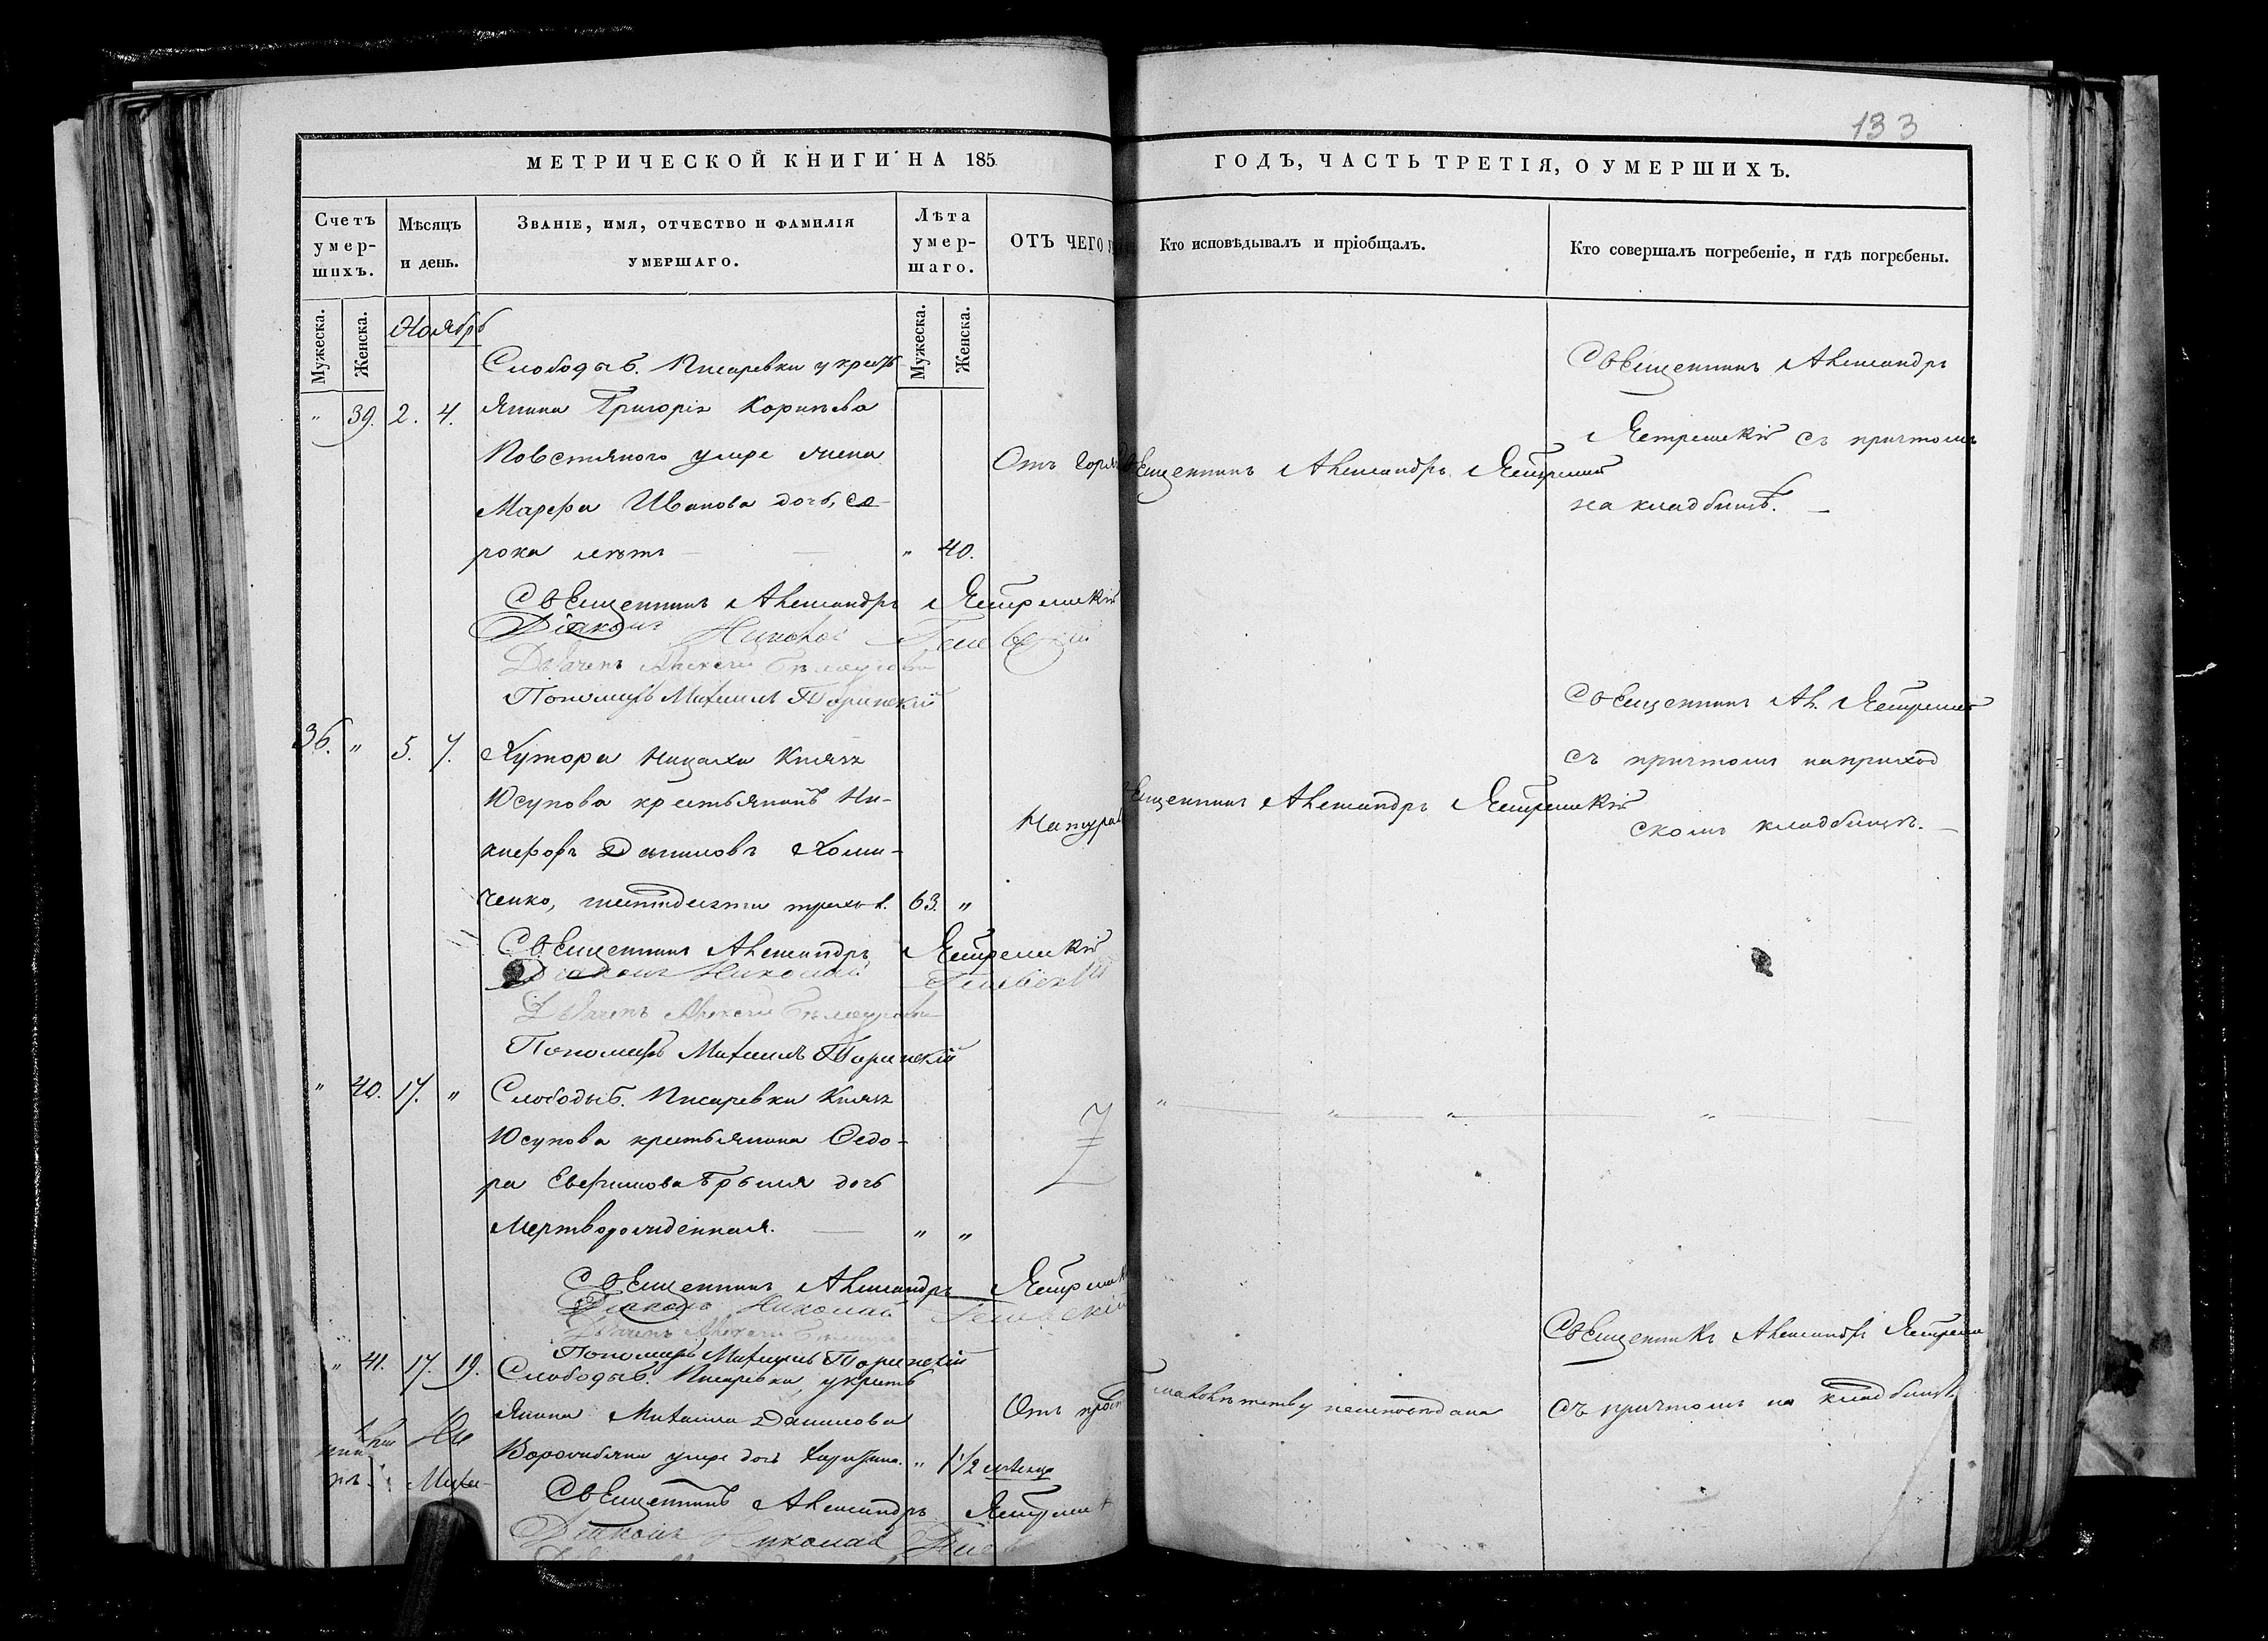 133
МЕТРИЧЕСКОЙ КНИГИ НА 185
ГОДЪ, ЧАСТЬ ТРЕТІЯ, О УМЕРШИХЪ.
Счетъ умер-шихъ.
Мѣсяцъ и день.
Званіе, имя, отчество и фамилія
умершаго.
Лѣта умер-шаго.
ОТЪ ЧЕГО
Кто исповѣдывалъ и пріобщалъ.
Кто совершалъ погребеніе, и гдѣ погребены.
Мужеска.
Женска.
Мужеска.
Женска.
Ноябрь
Слободы б. Писаревки у кресть
" 39. 2. 4. янина Григорія Корнѣева
Повстяного умре жена
Марфа Иванова дочь, со-
рока лѣтъ " 40.
Отъ горяч
Священникъ Александръ Ястремскій
Священникъ Александръ
Ястремскій съ причтомъ
на кладбищѣ.
Священникъ Александръ Ястремскій
Діаконъ Николай
Дьячекъ Алексей
Пономарь Михаилъ Торинскій
36. " 5. 7. Хутора Ницахи Князя
Юсупова крестьянинъ Ни-
кифоръ Даниловъ Хоми-
ченко, шестидесяти трехъ л. 63. "
Натурал
Священникъ Александръ Ястремскій
Священникъ Ал. Ястремскій
съ причтомъ на приход
скомъ кладбищѣ.
Священникъ Александръ Ястремскій
Діаконъ Николай
Дьячекъ Алексей
Пономарь Михаилъ Торинскій
" 40. 17. " Слободы б. Писаревки Князя
Юсупова крестьянина Ѳедо-
ра Евфимова дочь
мертворожденная. " "
" " " "
Священникъ Александръ Ястремск
Діаконъ Николай
Дьячекъ Алексей
Пономарь Михаилъ Торинскій
" 41. 17. 19. Слободы б. Писаревки, у кресть
янина Михаила Данилова
умре дочь " 1 1/2 мѣсяца
Отъ прост
малолѣтству неисповѣдана
Священникъ Александръ Ястремс
съ причтомъ на кладбищѣ
Священникъ Александръ Ястремск
Діаконъ Николай